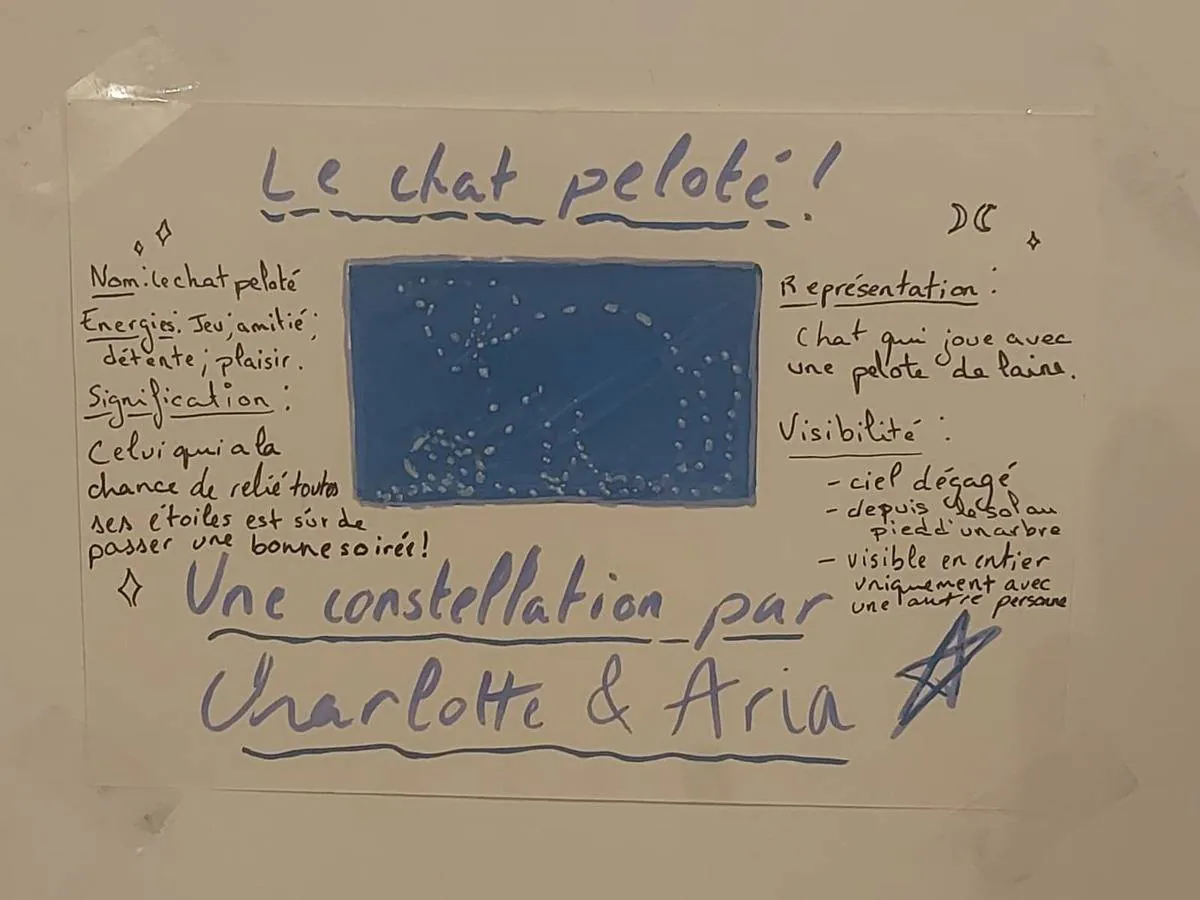 Le chat peloté !
Nom : le chat peloté
Energies : Jeu ; amitié ;
détente ; plaisir.
Signification :
Celui qui a la
chance de relié toutes
ses étoiles est sûr de
passer une bonne soirée !
Représentation :
Chat qui joue avec
une pelote de laine.
Visibilité :
- ciel dégagé
- depuis le sol au
pied d'un arbre
- visible en entier
uniquement avec
une autre personne
Une constellation par
Charlotte & Aria